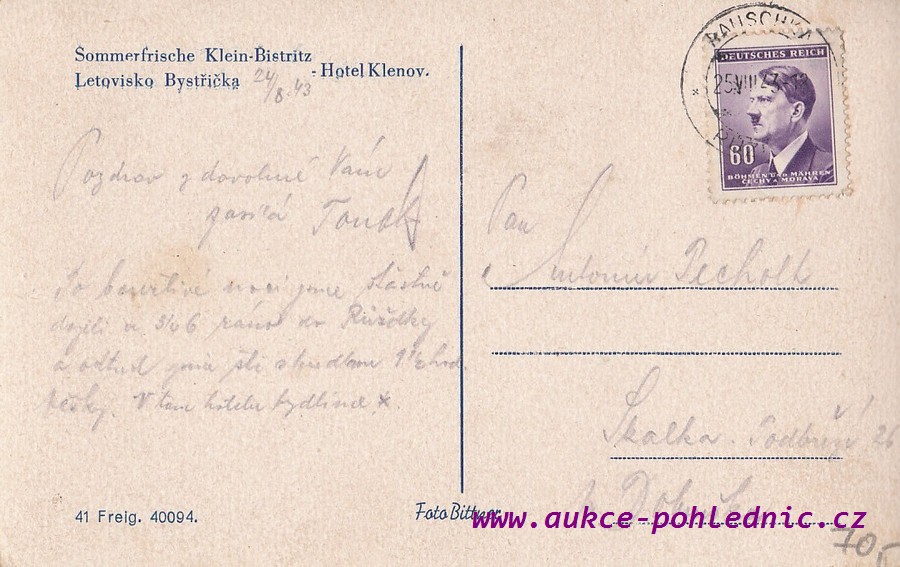 Sommerfrische Klein-Bistritz
Letovisko Bystřička - Hotel Klenov.
24/8. 43
Pozdrav z dovolené Vám
zasílá Toník
Po bouřlivé noci jsme šťastně
dojeli v 3/4 6 ráno do Růžďky
a odtud jsme šli 1 1/2 hod.
pěšky. V tom hotelu bydlíme x.
41 Freig. 40094.
Foto Bittner.
DEUTSCHES REICH
60
BÖHMEN UND MÄHREN
ČECHY A MORAVA
RAUSCHKA
25.VIII.43
Pan
Antonín Pecholt
Skalka - Podbřeží 26
www.aukce-pohlednic.cz
70,-